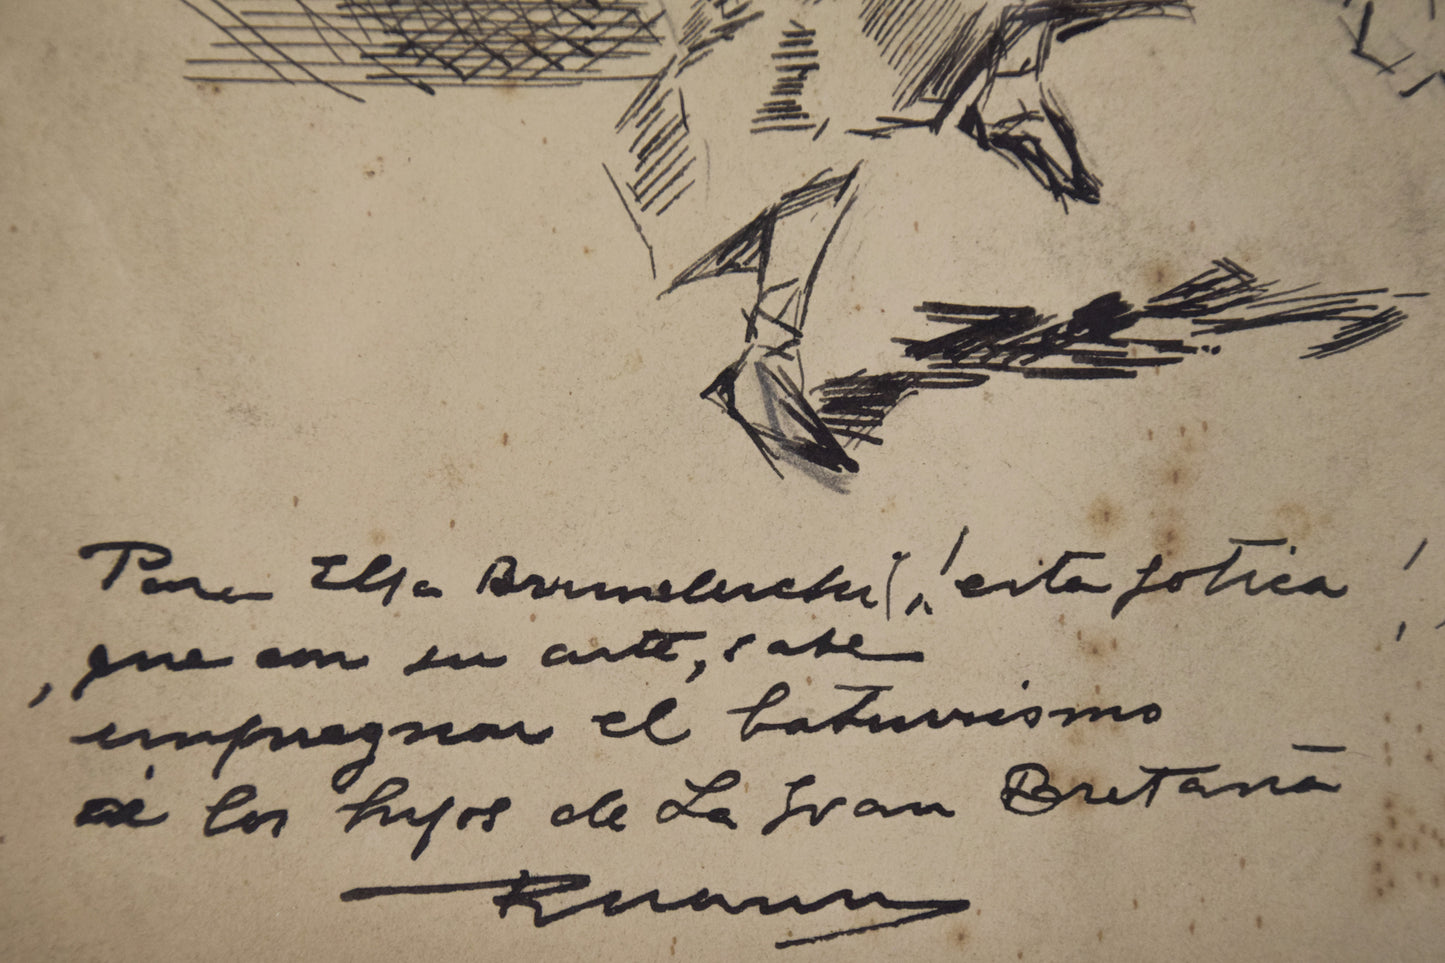 Para Elsa Brunelleschi, ¡esta jotica!
, que con su arte, sabe
impregnar el baturrismo
a los hijos de La Gran Bretaña